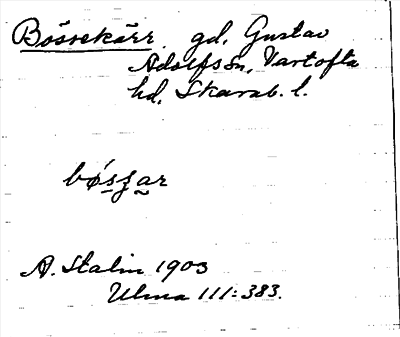 Bössekärr gd, Gustav
Adolfs sn, Vartofta
hd, Skarab. l.
A. Stalin 1903
Ulma 111:383.